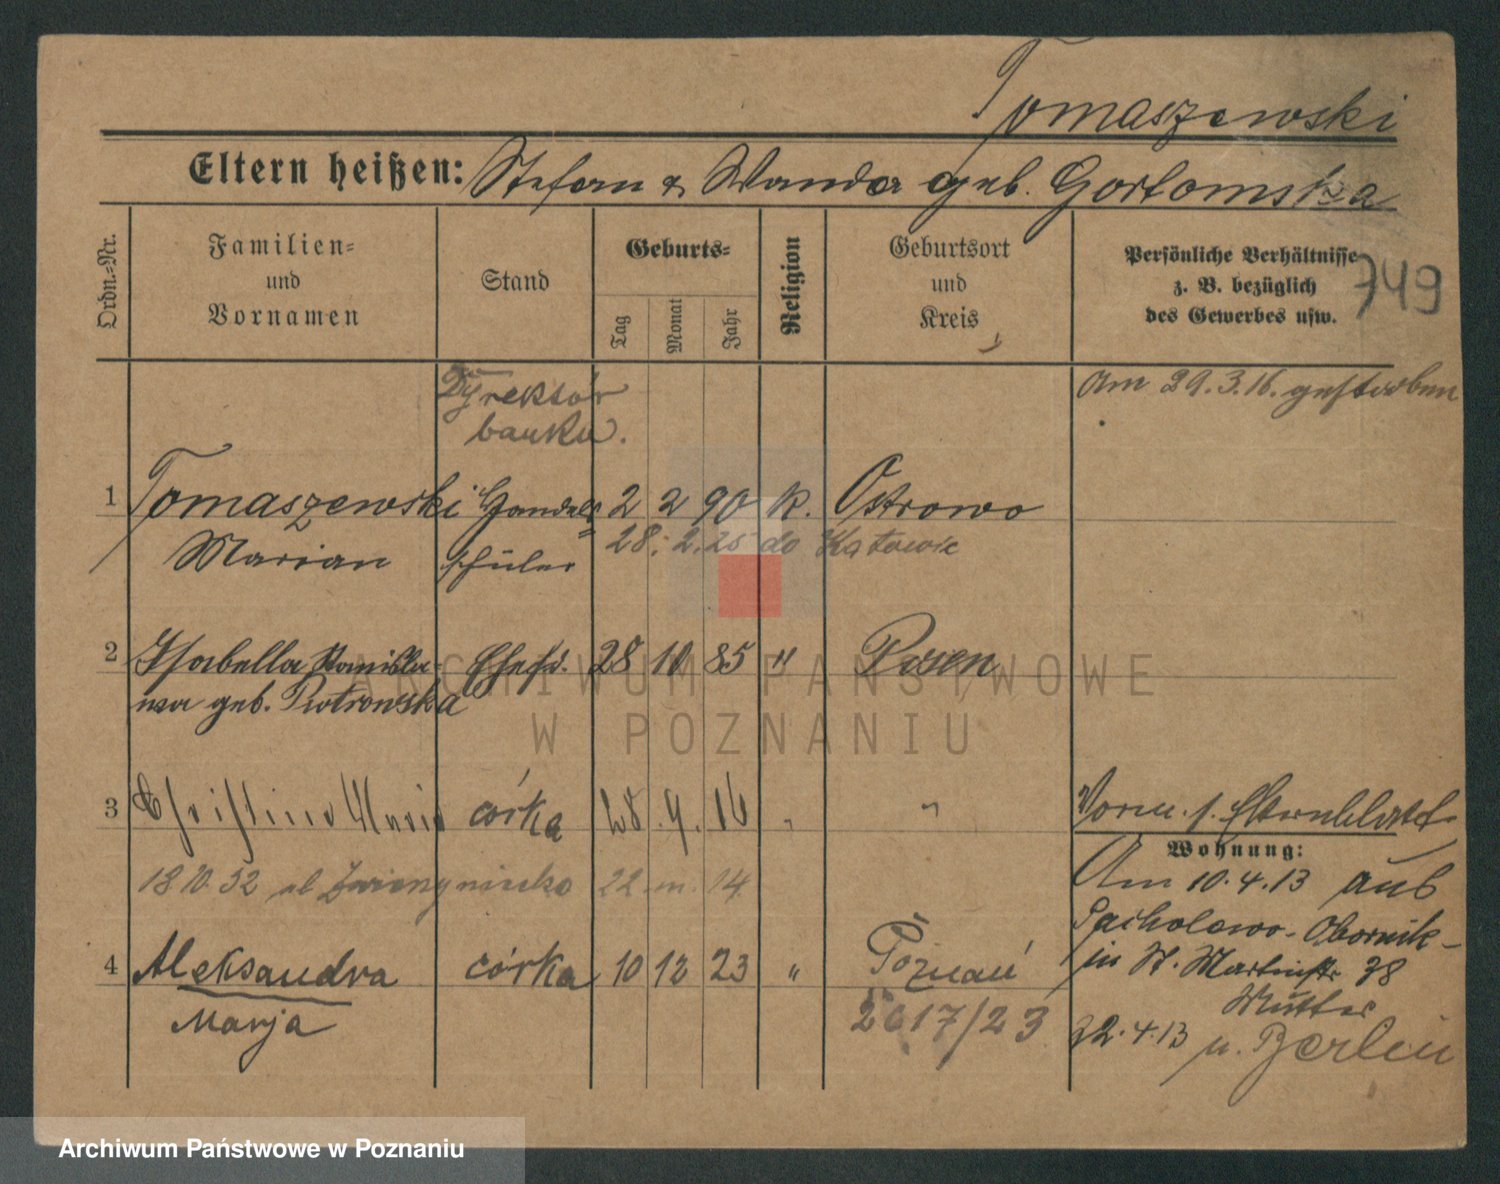 Tomaszewski
Eltern heißen: Stefan & Wanda geb. Gortomska
Ordn.-Nr.
Familien-
und
Vornamen
Stand
Geburts-
Tag
Monat
Jahr
Religion
Geburtsort
und
Kreis
Persönliche Verhältnisse
z. B. bezüglich
des Gewerbes usw.
749
Dyrektór
banku.
am 29.3.16. gestorben
1 Tomaszewski Handels 2 2 90 k. Ostrowo
Marian schüler 28. 2. 25 do Katowic
2 Isabella Stanisla- Ehefr. 28 10 85 " Posen
wa geb. Piotrowska
3 Christine Maria córka 28. 9. 16 " "
Vorm. s. Elternblatt
Wohnung:
18 10. 32 22 14
Am 10.4.13 aus
Pacholewo-Obornik-
in St. Martinstr. 38
Mutter
22.4.13 n. Berlin
4 Aleksandra córka 10 12 23 " Poznań
Marja 2017/23
ARCHIWUM PAŃSTWOWE
W POZNANIU
Archiwum Państwowe w Poznaniu